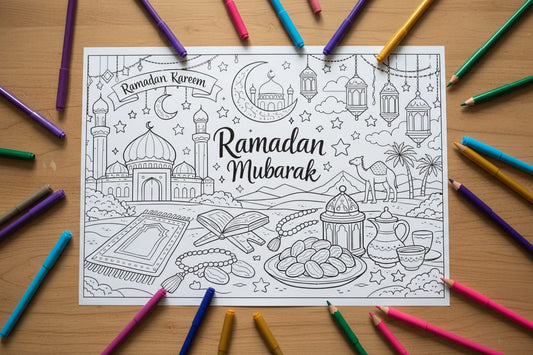 Ramadan Kareem
Ramadan
Mubarak